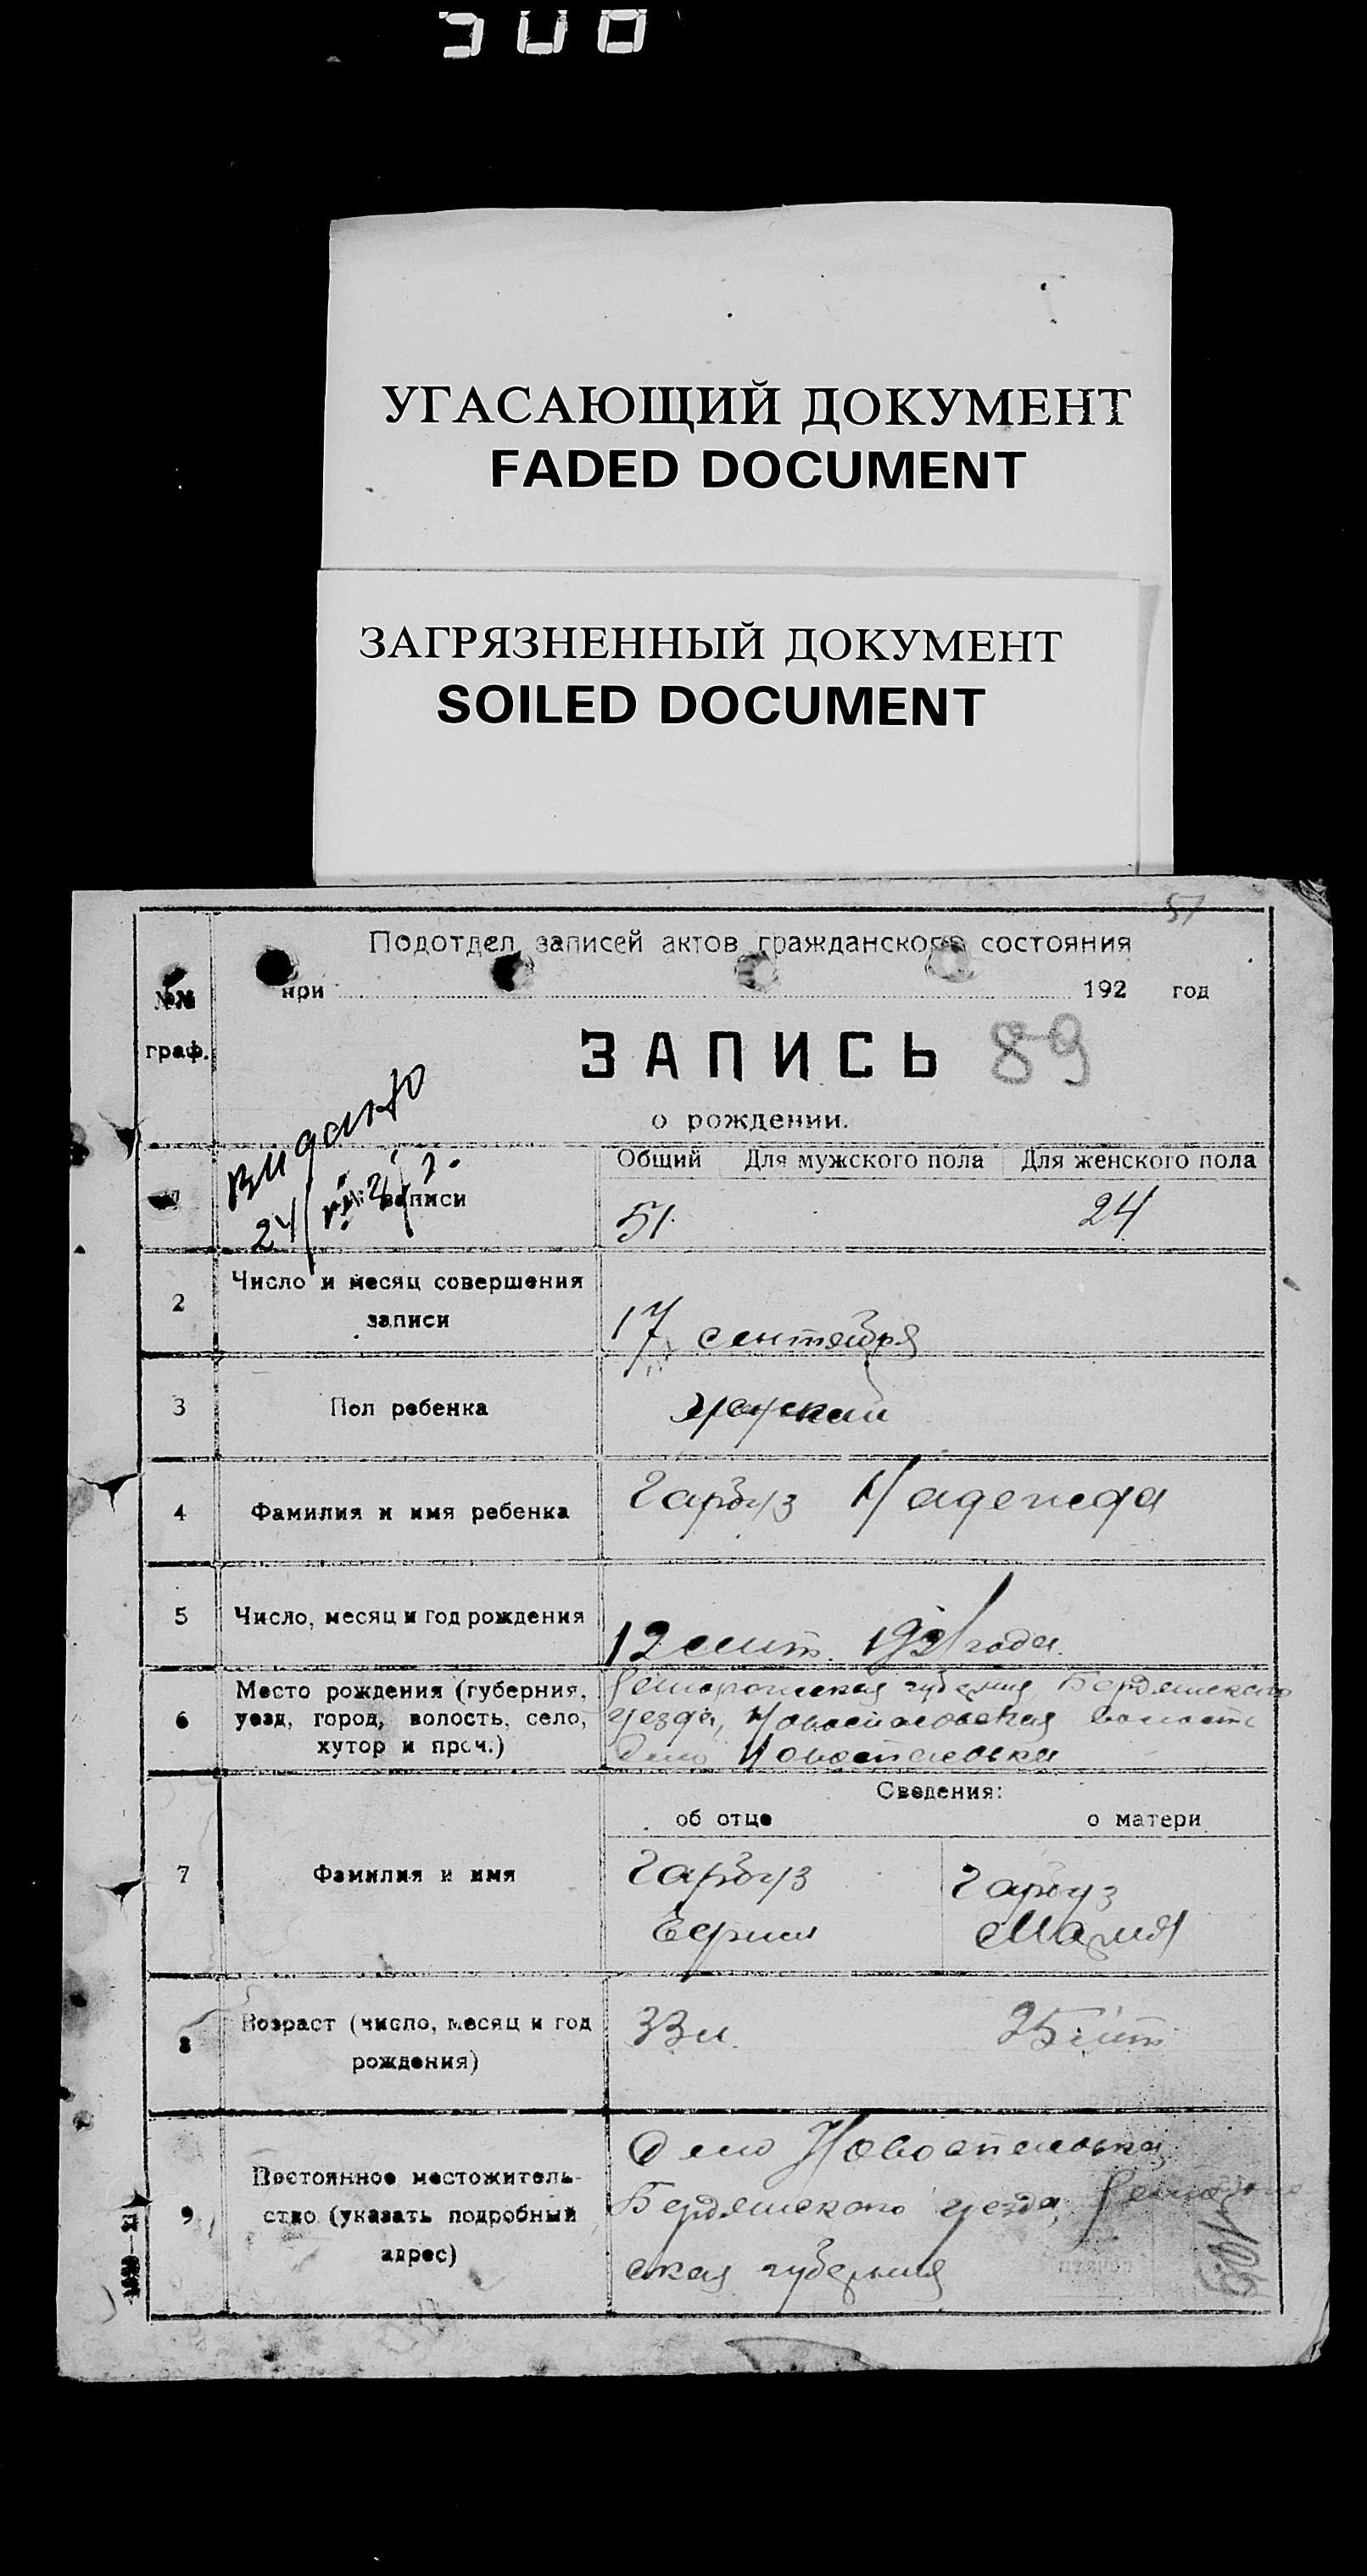 УГАСАЮЩИЙ ДОКУМЕНТ
FADED DOCUMENT
ЗАГРЯЗНЕННЫЙ ДОКУМЕНТ
SOILED DOCUMENT
51
Подотдел записей актов гражданского состояния
при 192 год
№№
граф.
ЗАПИСЬ 89
о рождении.
видано
24/
Общий Для мужского пола Для женского пола
записи
51. 24
2 Число и месяц совершения
записи
17 сентября
3 Пол ребенка
4 Фамилия и имя ребенка Гарбуз Надежда
5 Число, месяц и год рождения 12 сент. 1921 года.
6 Место рождения (губерния,
уезд, город, волость, село,
хутор и проч.)
губерния Бердянского
уезда, Новоспасовская волость
село Новоспасовка
Сведения:
об отце о матери
7 Фамилия и имя
Гарбуз Гарбуз
Мария
8 Возраст (число, месяц и год
рождения)
33 л. 25 лет.
9 Постоянное местожитель-
ство (указать подробный
адрес)
село Новоспасовка
Бердянского уезда
ская губерния